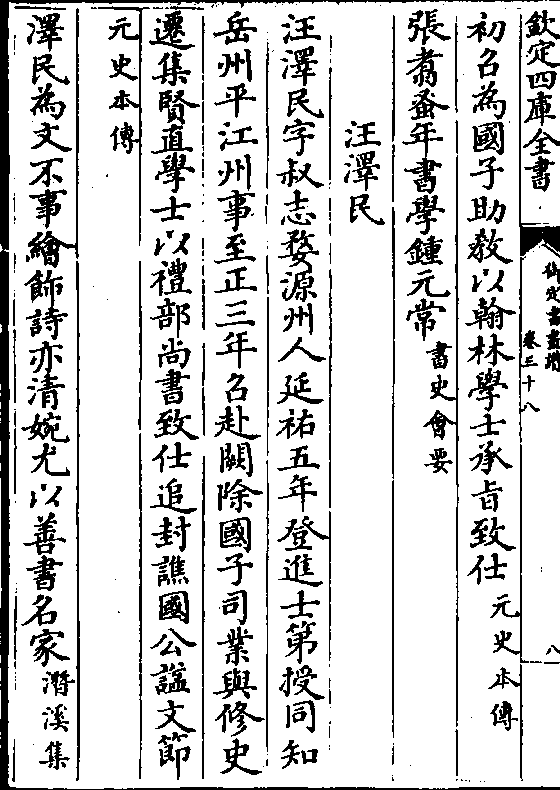 欽定四庫全書
御定書畫譜
卷三十八
八
初召為國子助教以翰林學士承㫖致仕元史本傳
張翥蚤年書學鍾元常書史會要
汪澤民
汪澤民字叔志婺源州人延祐五年登進士第授同知
岳州平江州事至正三年召赴闕除國子司業與修史
遷集賢直學士以禮部尚書致仕追封譙國公謚文節
元史本傳
澤民為文不事繪飾詩亦清婉尤以善書名家潛溪集